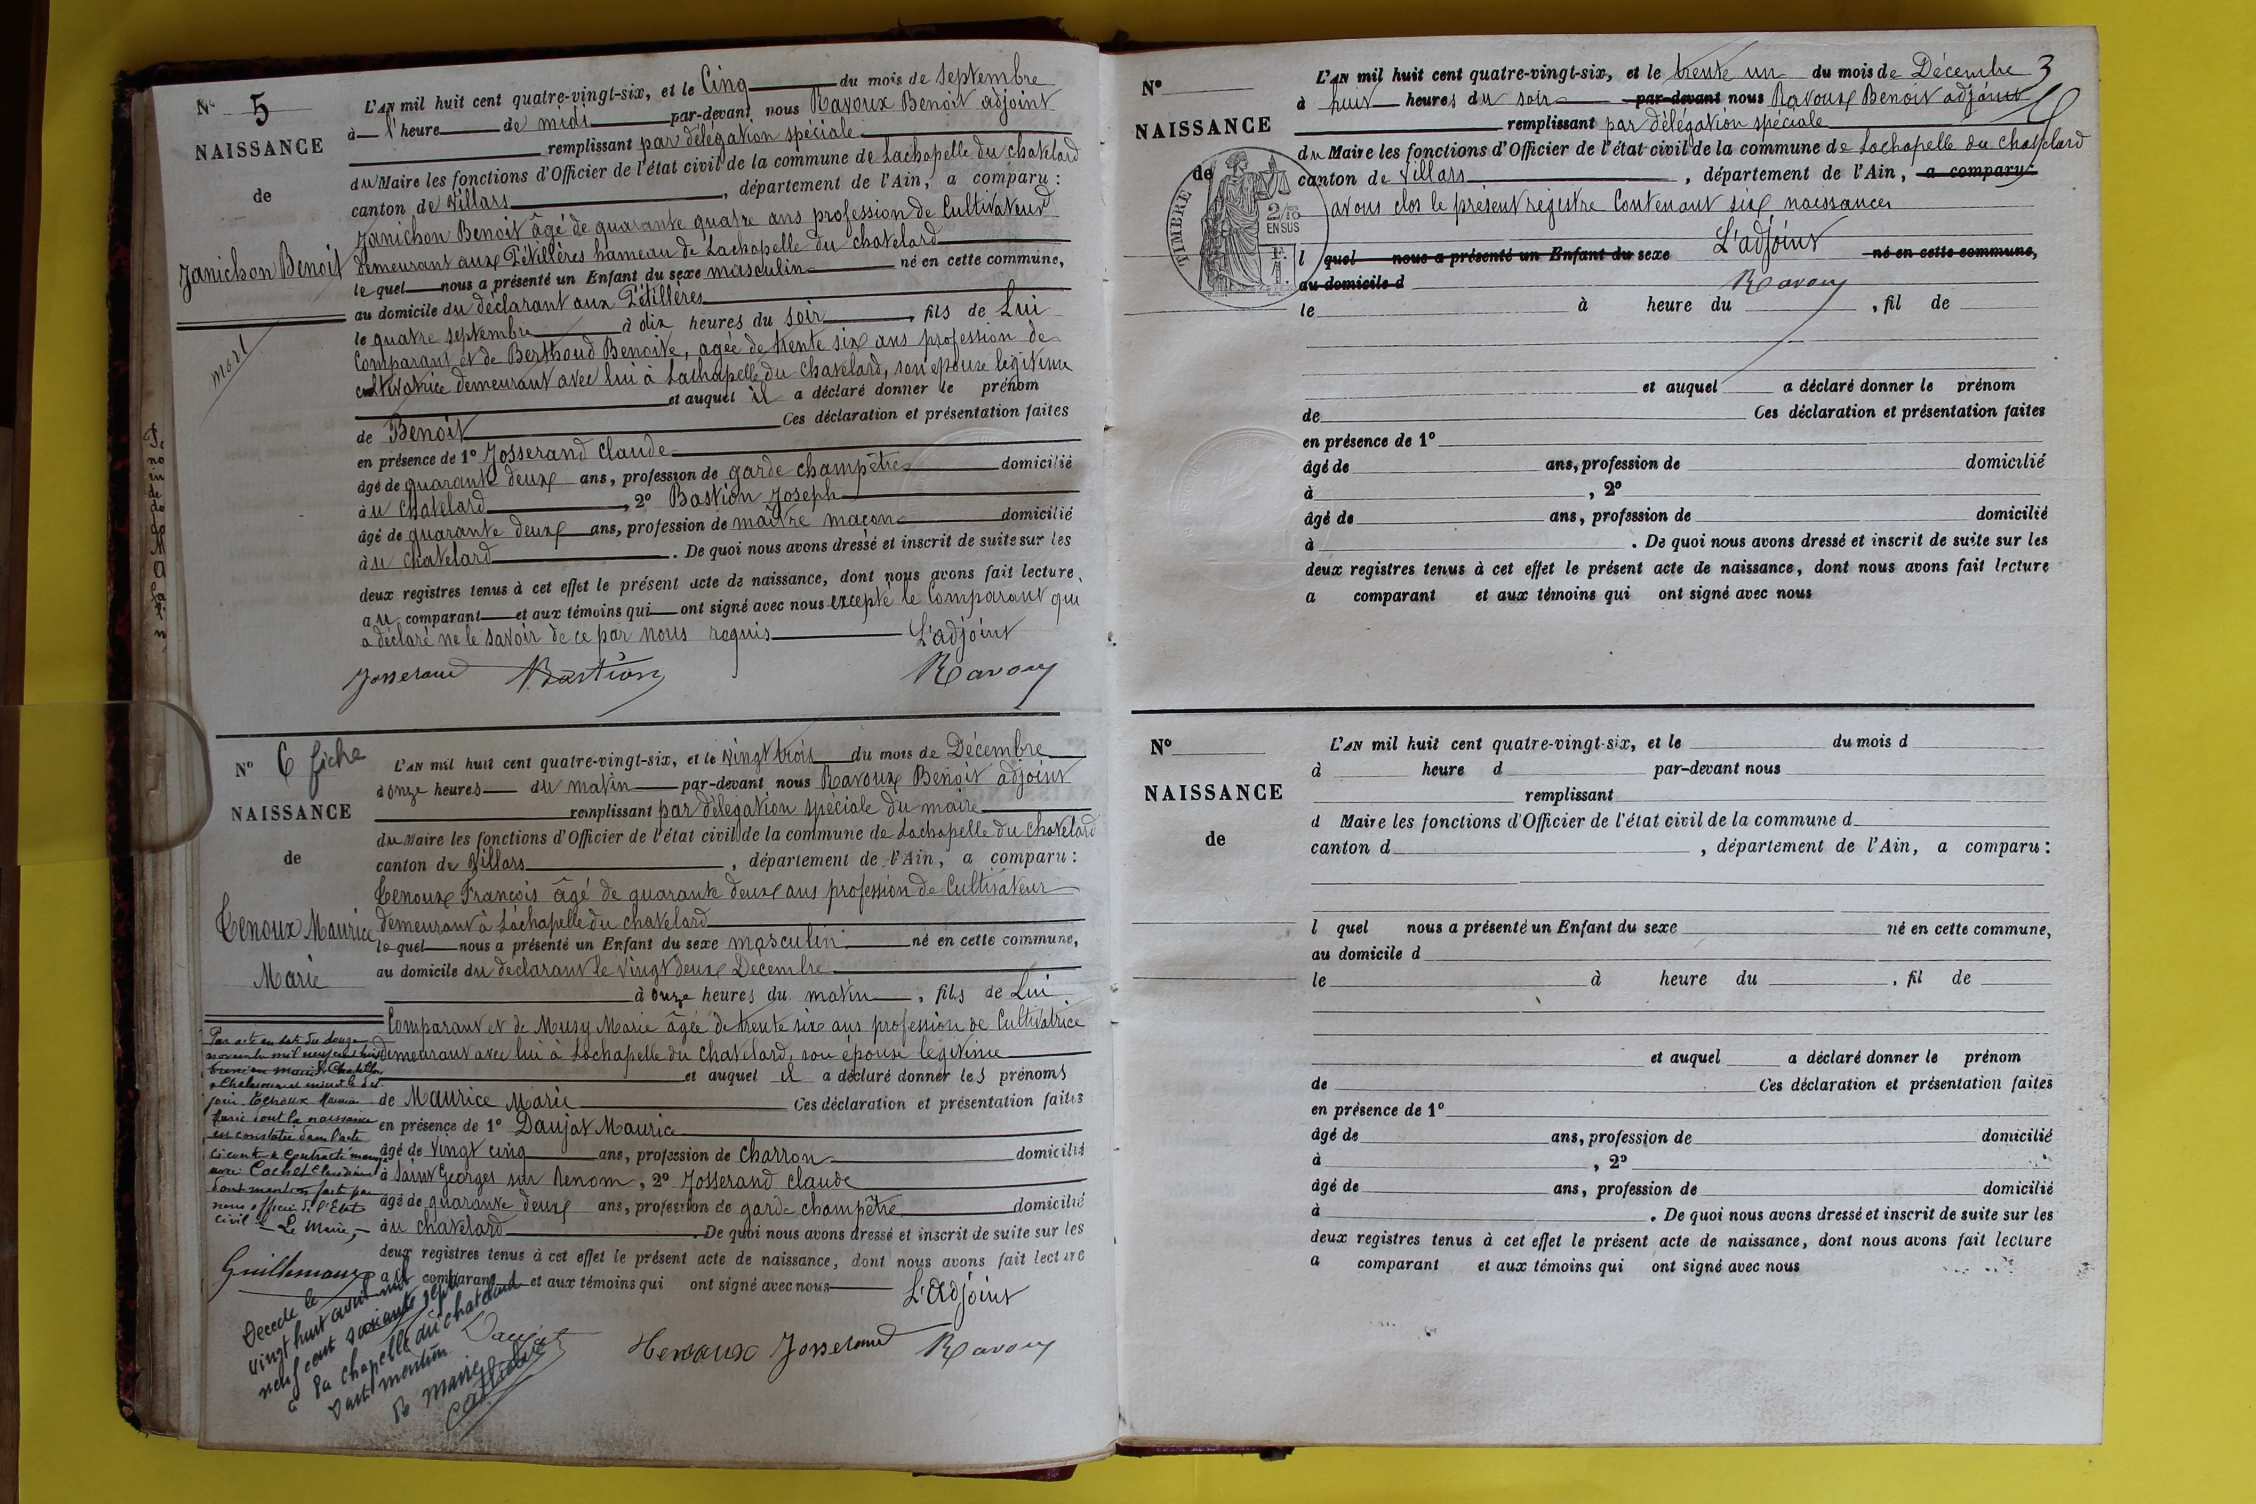 No 5
NAISSANCE
de
Janichon Benoit
mort
L'AN mil huit cent quatre-vingt-six, et le Cinq du mois de septembre
à l'heure de midi par-devant nous Ravoux Benoit adjoint
remplissant par délégation spéciale
du Maire les fonctions d'Officier de l'état civil de la commune de Lachapelle du chatelard
canton de Villars, département de l'Ain, a comparu :
Janichon Benoit âgé de quarante quatre ans profession de Cultivateur
demeurant aux Pétillères hameau de Lachapelle du chatelard
le quel nous a présenté un Enfant du sexe masculin né en cette commune,
au domicile du déclarant aux Pétillères
le quatre septembre à dix heures du soir, fils de Lui
Comparant et de Berthoud Benoite, agée de trente six ans profession de
cultivatrice demeurant avec lui à Lachapelle du chatelard, son épouse légitime
et auquel il a déclaré donner le prénom
de Benoit Ces déclaration et présentation faites
en présence de 1º Josserand Claude
âgé de quarante deux ans, profession de garde champêtre domicilié
à u chatelard, 2º Bastion Joseph
âgé de quarante deux ans, profession de maître maçon domicilié
à u chatelard. De quoi nous avons dressé et inscrit de suite sur les
deux registres tenus à cet effet le présent acte de naissance, dont nous avons fait lecture
a u comparant et aux témoins qui ont signé avec nous excepté le Comparant qui
a déclaré ne le savoir de ce par nous requis L'adjoint
Josserand Bastion Ravoux
No 6 fiche
NAISSANCE
de
Tenoux Maurice
Marie
L'AN mil huit cent quatre-vingt-six, et le vingt trois du mois de Décembre
à onze heures du matin par-devant nous Ravoux Benoit adjoint
remplissant par délégation spéciale du maire
du Maire les fonctions d'Officier de l'état civil de la commune de Lachapelle du chatelard
canton de Villars, département de l'Ain, a comparu :
Tenoux François âgé de quarante deux ans profession de Cultivateur
demeurant à Lachapelle du chatelard
le quel nous a présenté un Enfant du sexe masculin né en cette commune,
au domicile du déclarant le vingt deux Décembre
à onze heures du matin, fils de Lui
Comparant et de Musy Marie âgée de trente six ans profession de Cultivatrice
demeurant avec lui à Lachapelle du chatelard, son épouse légitime
et auquel il a déclaré donner les prénoms
de Maurice Marie Ces déclaration et présentation faites
en présence de 1º Daujat Maurice
âgé de vingt cinq ans, profession de charron domicilié
à Saint Georges sur Renom, 2º Josserand Claude
âgé de quarante deux ans, profession de garde champêtre domicilié
à u chatelard. De quoi nous avons dressé et inscrit de suite sur les
deux registres tenus à cet effet le présent acte de naissance, dont nous avons fait lecture
a u comparant et aux témoins qui ont signé avec nous L'adjoint
Daujat Josserand Ravoux
Par acte en date du douze
novembre mil neuf cent
jour Tenoux Maurice
Marie dont la naissance
est constatée dans l'acte
ci contre a contracté mariage
avec Cochet Claudine
dont mention faite par
nous officier de l'Etat
civil Le Maire,
Guillemaux
Décédé le
vingt huit avril mil
neuf cent soixante sept
à La chapelle du chatelard
dont mention
Le maire
No
NAISSANCE
de
TIMBRE
2/10 EN SUS
L'AN mil huit cent quatre-vingt-six, et le trente un du mois de Décembre 3
à huit heures du soir par-devant nous Ravoux Benoit adjoint
remplissant par délégation spéciale
du Maire les fonctions d'Officier de l'état civil de la commune de Lachapelle du Chatelard
canton de Villars, département de l'Ain, a comparu :
avons clos le présent registre Contenant six naissances
L'adjoint
l quel nous a présenté un Enfant du sexe né en cette commune,
au domicile d Ravoux
le à heure du , fil de
et auquel a déclaré donner le prénom
de Ces déclaration et présentation faites
en présence de 1º
âgé de ans, profession de domicilié
à , 2º
âgé de ans, profession de domicilié
à . De quoi nous avons dressé et inscrit de suite sur les
deux registres tenus à cet effet le présent acte de naissance, dont nous avons fait lecture
a comparant et aux témoins qui ont signé avec nous
No
NAISSANCE
de
L'AN mil huit cent quatre-vingt-six, et le du mois d
à heure d par-devant nous
remplissant
d Maire les fonctions d'Officier de l'état civil de la commune d
canton d , département de l'Ain, a comparu :
l quel nous a présenté un Enfant du sexe né en cette commune,
au domicile d
le à heure du , fil de
et auquel a déclaré donner le prénom
de Ces déclaration et présentation faites
en présence de 1º
âgé de ans, profession de domicilié
à , 2º
âgé de ans, profession de domicilié
à . De quoi nous avons dressé et inscrit de suite sur les
deux registres tenus à cet effet le présent acte de naissance, dont nous avons fait lecture
a comparant et aux témoins qui ont signé avec nous